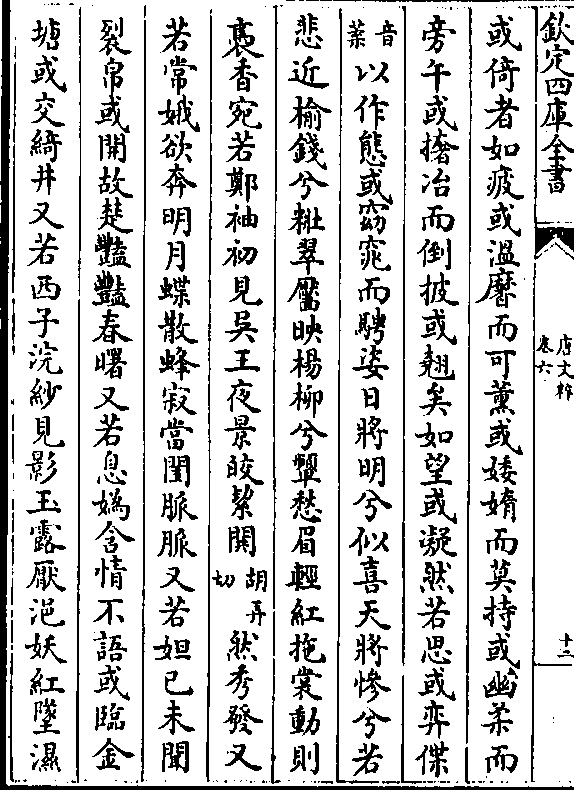 欽定四庫全書
唐文粹
卷六
十二
或倚者如疲或溫麐而可薰或婑媠而莫持或幽柔而
旁午或擔冶而倒披或翹矣如望或凝然若思或弈偞
音葉以作態或窈窕而騁姿日將明兮似喜天將慘兮若
悲近榆錢兮粧翠靨映楊柳兮顰愁眉輕紅拖裳動則
裛香宛若鄭袖初見吳王夜景皎潔鬨胡弄切然秀發又
若常娥欲奔明月蝶散蜂寂當閨脈脈又若妲己未聞
裂帛或開故楚豔豔春曙又若息媯含情不語或臨金
塘或交綺井又若西子浣紗見影玉露厭浥妖紅墜濕